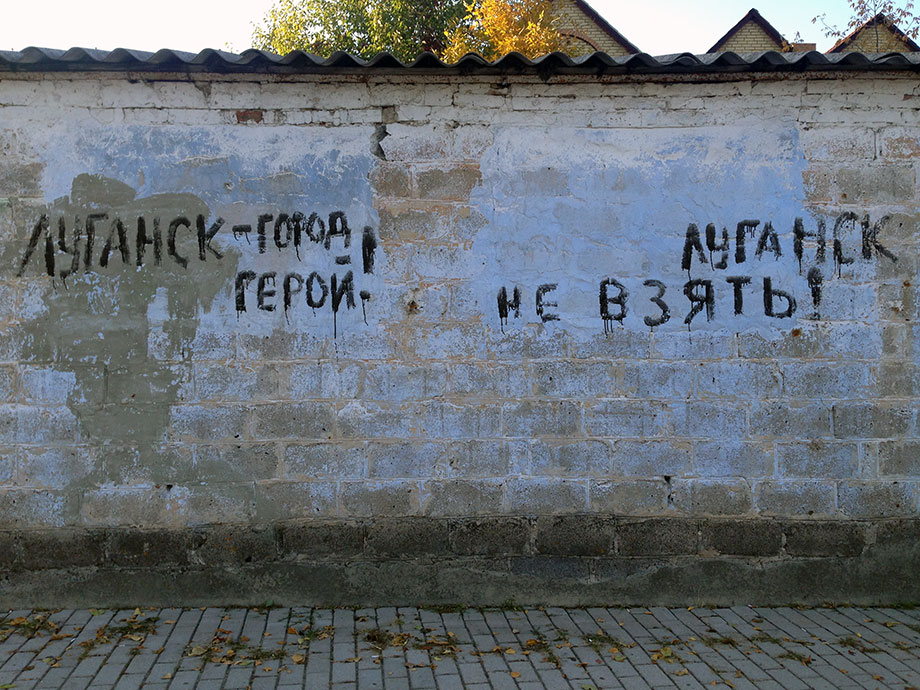 ЛУГАНСК-ГОРОД
ГЕРОЙ!
ЛУГАНСК
НЕ ВЗЯТЬ!